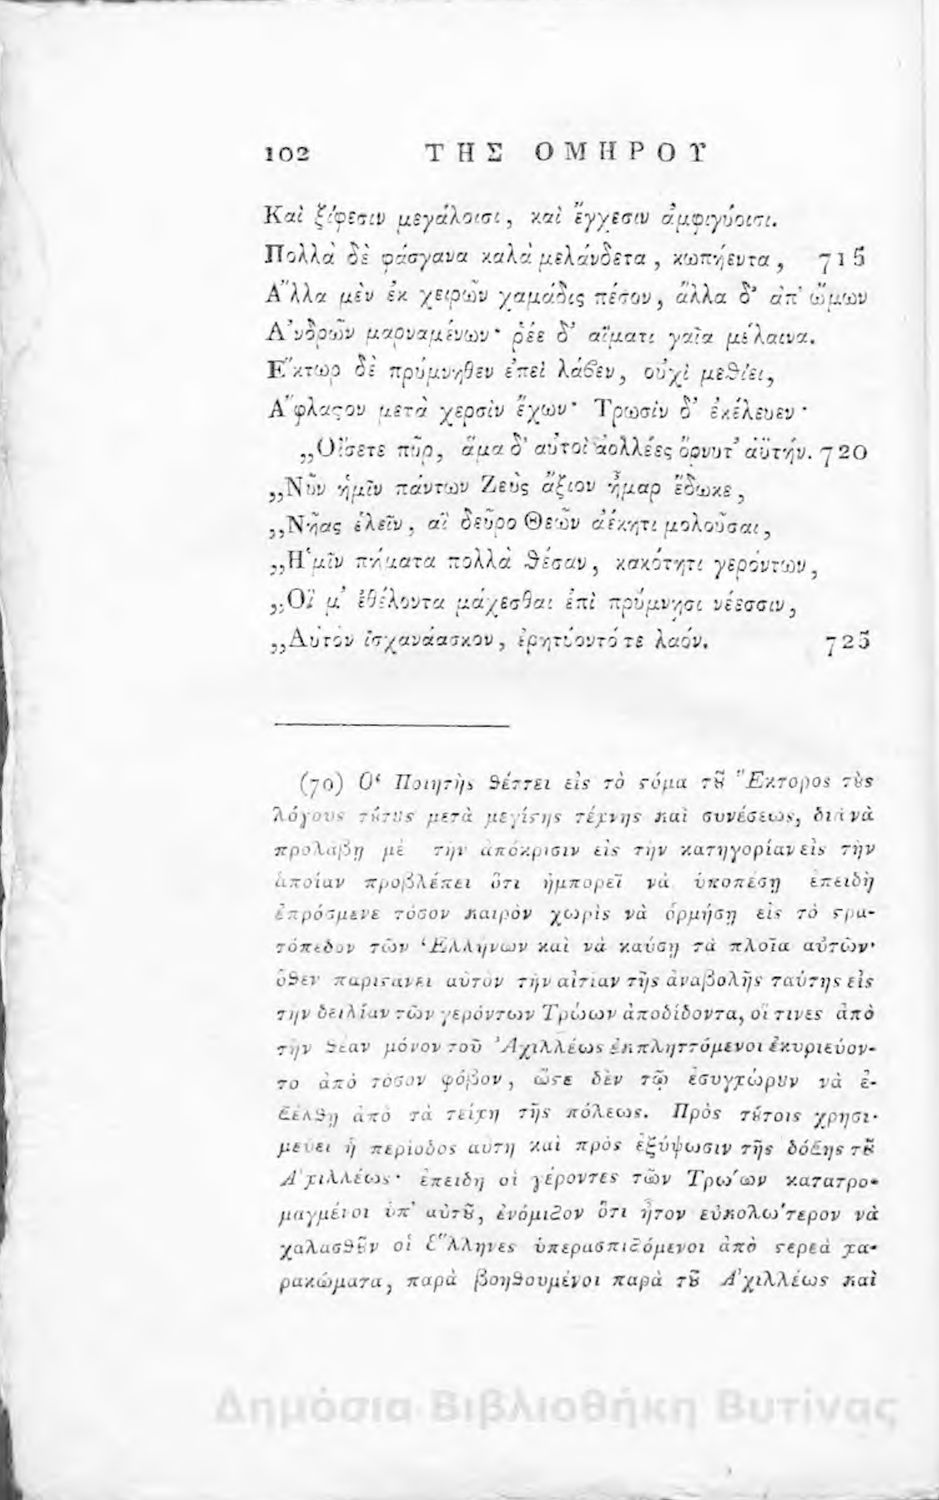 102 ΤΗΣ ΟΜΗΡΟΥ
Καὶ ξίφεσιν μεγάλοισι, καὶ ἔγχεσιν ἀμφιγύοισι.
Πολλὰ δὲ φάσγανα καλὰ μελάνδετα, κωπήεντα, 715
Α῎λλα μὲν ἐκ χειρῶν χαμάδις πέσον, ἄλλα δ' ἀπ' ὤμων
Α᾿νδρῶν μαρναμένων· ῥέε δ' αἵματι γαῖα μέλαινα.
Ε῞κτωρ δὲ πρύμνηθεν ἐπεὶ λάϐεν, οὐχὶ μεθίει,
Α῎φλαϛον μετὰ χερσὶν ἔχων· Τρωσὶν δ' ἐκέλευεν·
„Οἴσετε πῦρ, ἅμα δ' αὐτοὶ ἀολλέες ὄρνυτ' ἀϋτήν. 720
„Νῦν ἡμῖν πάντων Ζεὺς ἄξιον ἦμαρ ἔδωκε,
„Νῆας ἑλεῖν, αἳ δεῦρο Θεῶν ἀέκητι μολοῦσαι,
„Η῾μῖν πήματα πολλὰ ϑέσαν, κακότητι γερόντων,
„Οἵ μ' ἐθέλοντα μάχεσθαι ἐπὶ πρύμνησι νέεσσιν,
„Αὐτὸν ἰσχανάασκον, ἐρητύοντό τε λαόν. 725
(70) Ο῾ Ποιητὴς ϑέττει εἰς τὸ ϛόμα τȣ͂ ῞Εκτορος τȣ̀ς
λόγους τȣ́τȣς μετὰ μεγίϛης τέχνης καὶ συνέσεως, διὰ νὰ
προλάβῃ μὲ τὴν ἀπόκρισιν εἰς τὴν κατηγορίαν εἰς τὴν
ὁποίαν προβλέπει ὅτι ἠμπορεῖ νὰ ὑποπέσῃ ἐπειδὴ
ἐπρόσμενε τόσον καιρὸν χωρὶς νὰ ὁρμήσῃ εἰς τὸ ϛρα-
τόπεδον τῶν ῾Ελλήνων καὶ νὰ καύσῃ τὰ πλοῖα αὐτῶν·
ὅϑεν παριϛάνει αὐτὸν τὴν αἰτίαν τῆς ἀναβολῆς ταύτης εἰς
τὴν δειλίαν τῶν γερόντων Τρώων ἀποδίδοντα, οἵ τινες ἀπὸ
τὴν ϑέαν μόνον τοῦ ᾿Αχιλλέως ἐκπληττόμενοι ἐκυριεύον-
το ἀπὸ τόσον φόβον, ὥϛε δὲν τῷ ἐσυγχώρȣν νὰ ἐ-
ξέλϑῃ ἀπὸ τὰ τείχη τῆς πόλεως. Πρὸς τȣ́τοις χρησι-
μεύει ἡ περίοδος αὕτη καὶ πρὸς ἐξύψωσιν τῆς δόξης τȣ͂
Α᾿χιλλέως· ἐπειδὴ οἱ γέροντες τῶν Τρώων κατατρο-
μαγμένοι ὑπ' αὐτȣ͂, ἐνόμιζον ὅτι ἦτον εὐκολώτερον νὰ
χαλασϑȣ͂ν οἱ Ε῞λληνες ὑπερασπιζόμενοι ἀπὸ ϛερεὰ χα-
ρακώματα, παρὰ βοηϑουμένοι παρὰ τȣ͂ Α᾿χιλλέως καὶ
Δημόσια Βιβλιοθήκη Βυτίνας